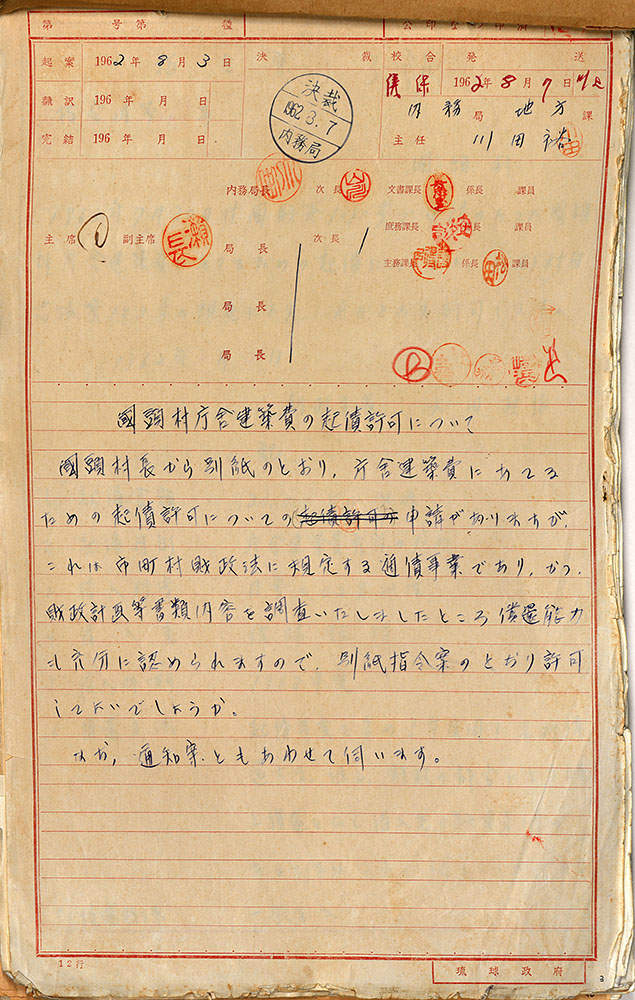 第 号 第 種
起案 1962年8月3日 決裁 校合 発送 1962年8月7日
翻訳 196 年 月 日 内務局 地方課
完結 196 年 月 日 主任 川田
決裁 1962.3.7 内務局
内務局長 次長 文書課長 係長 課員
庶務課長 係長 課員
主席 副主席 局長 次長 主務課長 係長 課員
局長
局長
國頭村庁舎建築費の起債許可について
國頭村長から別紙のとおり、庁舎建築費にあてる
ための起債許可についての(起債許可の 申請がありますが、
これは市町村財政法に規定する適債事業であり、かつ、
財政計画等書類内容を調査いたしましたところ償還能力
も充分に認められますので、別紙指令案のとおり許可
してよいでしょうか。
なお、通知案ともあわせて伺います。
12行
琉球政府